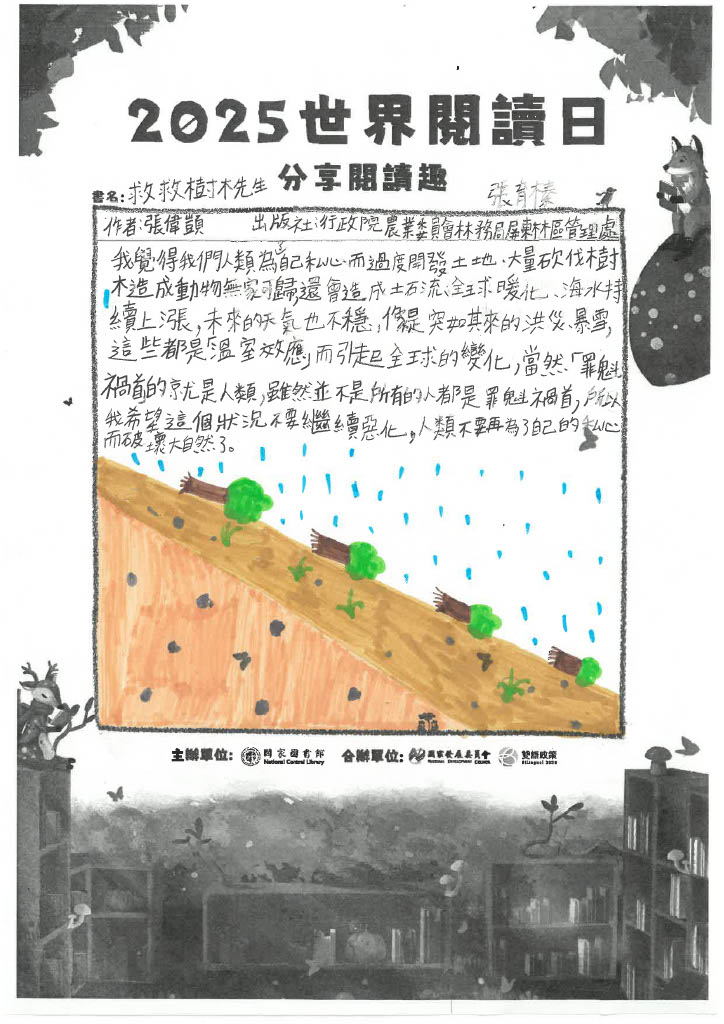 2025世界閱讀日
分享閱讀趣
書名:救救樹木先生 張育榛
作者:張偉顗 出版社:行政院農業委員會林務局屏東林區管理處
我覺得我們人類為了自己私心而過度開發土地、大量砍伐樹
木造成動物無家可歸還會造成土石流、全球暖化、海水持
續上漲,未來的天氣也不穩,像是突如其來的洪災、暴雪,
這些都是「溫室效應」而引起全球的變化,當然「罪魁
禍首的就是人類,雖然並不是所有的人都是罪魁禍首,所以
我希望這個狀況不要繼續惡化,人類不要再為了自己的私心
而破壞大自然了。
主辦單位: 國家圖書館 National Central Library 合辦單位: 國家發展委員會 NATIONAL DEVELOPMENT COUNCIL 雙語政策 Bilingual 2030